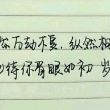 然万劫不复,纵然相
也待你眉眼如初 岁